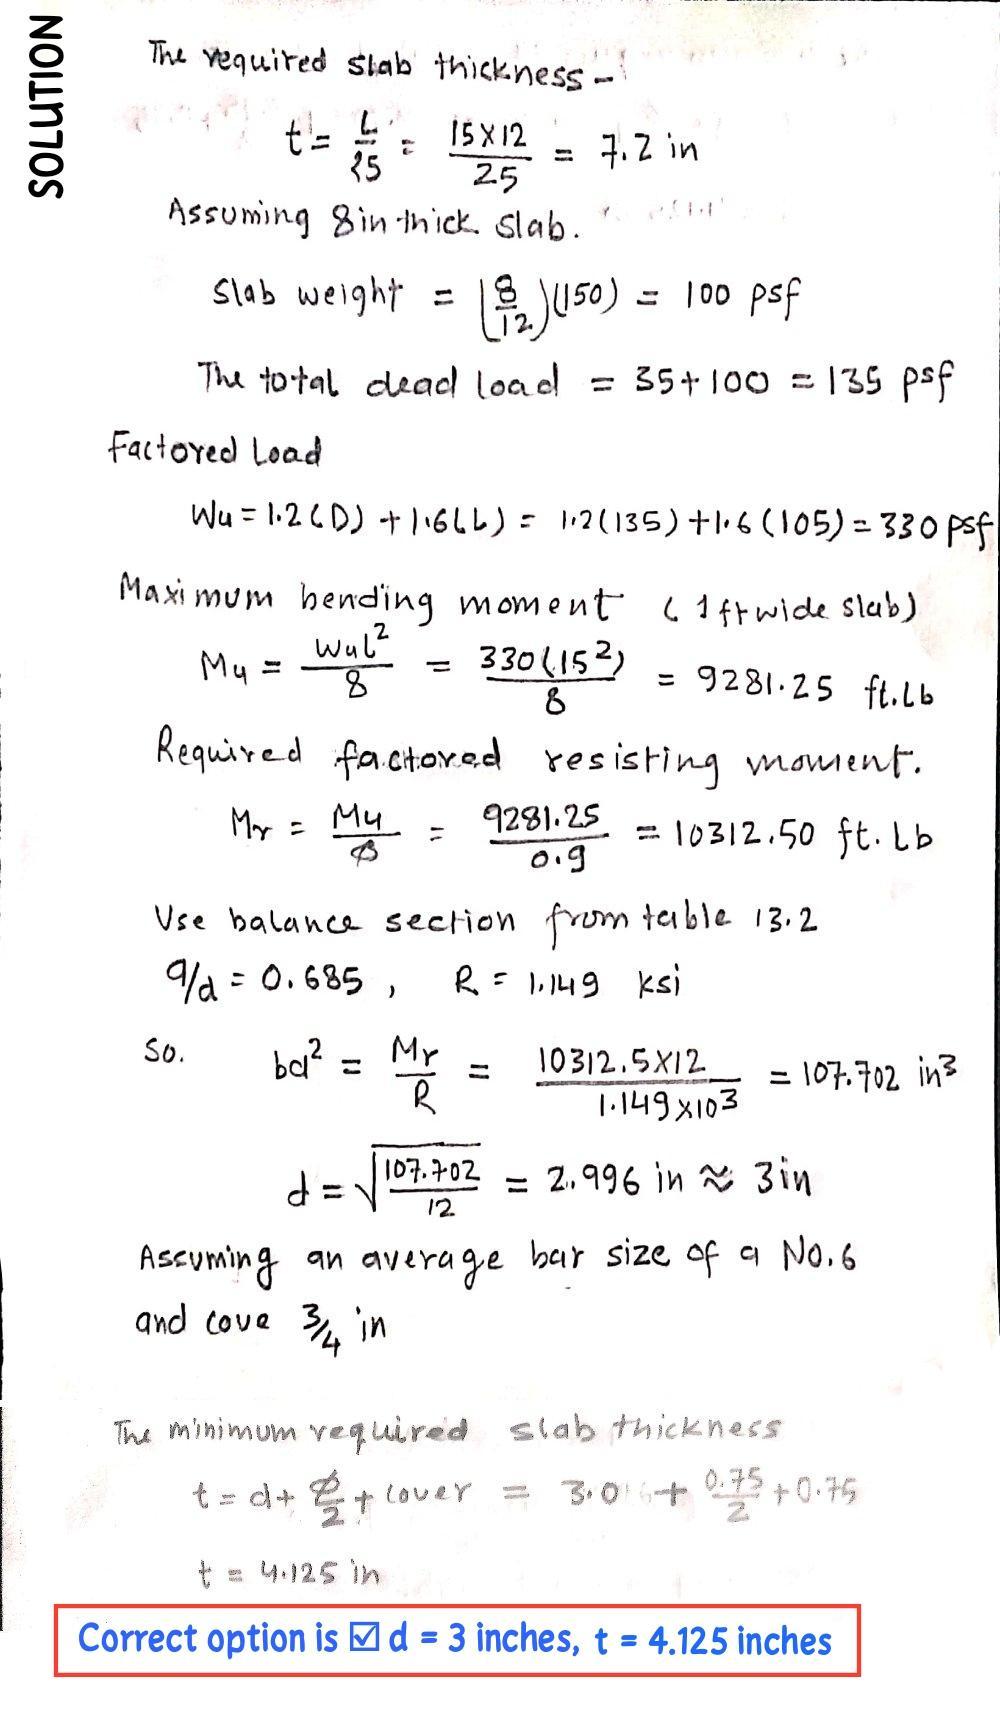 SOLUTION
The required slab thickness -
t = L/25 = 15X12/25 = 7.2 in
Assuming 8 in thick slab.
Slab weight = (8/12)(150) = 100 psf
The total dead load = 35+100 = 135 psf
Factored Load
Wu = 1.2(D) + 1.6(L) = 1.2(135)+1.6(105) = 330 psf
Maximum bending moment (1 ft wide slab)
Mu = Wul²/8 = 330(15²)/8 = 9281.25 ft.Lb
Required factored resisting moment.
Mr = Mu/Ø = 9281.25/0.9 = 10312.50 ft.Lb
Use balance section from table 13.2
a/d = 0.685, R = 1.149 ksi
So. bd² = Mr/R = 10312.5X12/1.149x10³ = 107.702 in³
d = √107.702/12 = 2.996 in ≈ 3in
Assuming an average bar size of a No.6
and cove 3/4 in
The minimum required slab thickness
t = d+ Ø/2 + cover = 3.0 + 0.75/2 + 0.75
t = 4.125 in
Correct option is ☑ d = 3 inches, t = 4.125 inches